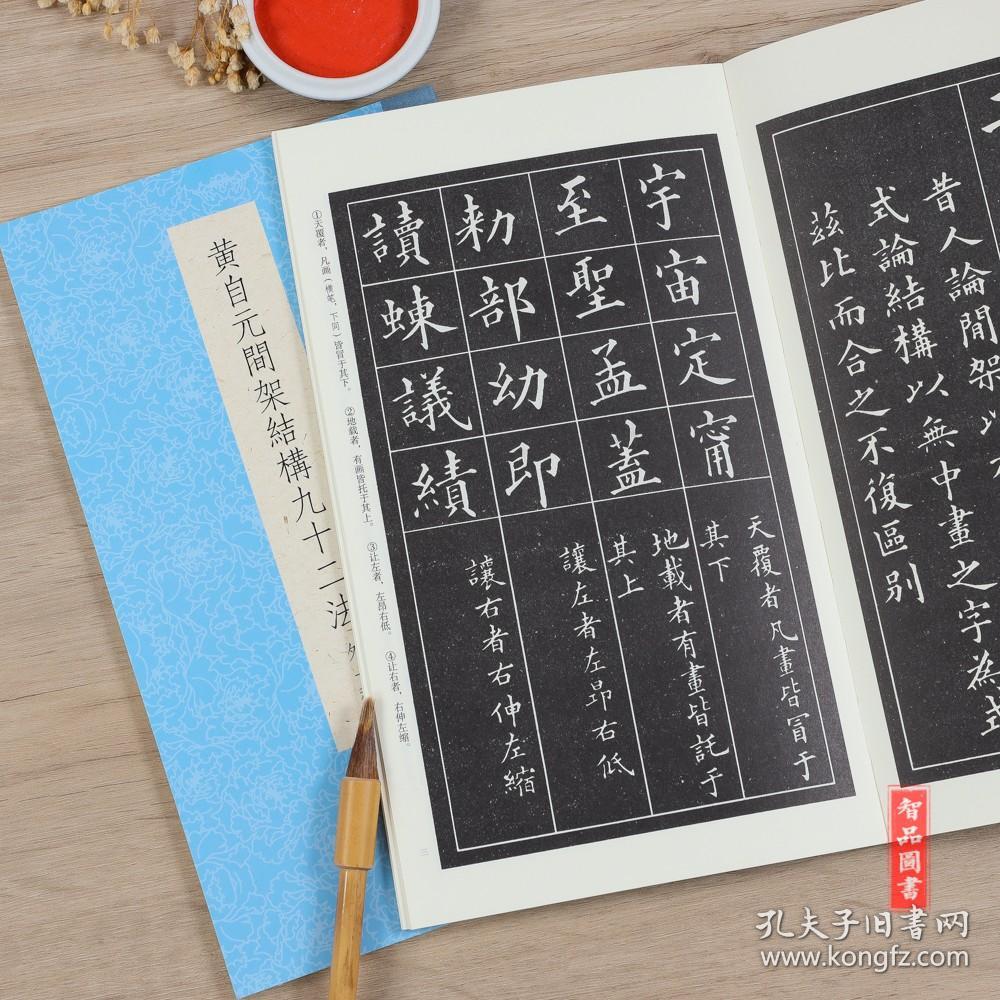 黄自元間架結構九十二法
昔人論間架以
式論結構以無中畫之字為式
茲比而合之不復區別
宇宙定甯
天覆者凡畫皆冒于
其下
至聖孟蓋
地載者有畫皆託于
其上
勑部幼即
讓左者左昂右低
讀蝀議績
讓右者右伸左縮
①天覆者，凡画（横笔，下同）皆冒于其下。 ②地载者，有画皆托于其上。 ③让左者，左昂右低。 ④让右者，右伸左缩。
三
智品圖書
孔夫子旧书网
www.kongfz.com